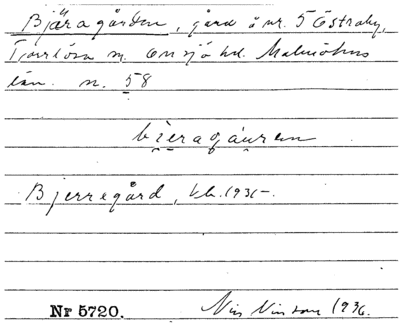 Bjäragården, gård å nr. 5 Östraby,
Torrlösa sn. Onsjö hd. Malmöhus
län. n. 58
bi̯eragåuren
Bjerregård, kk. 1931-.
Nr 5720. Nils Nilsson 1936.